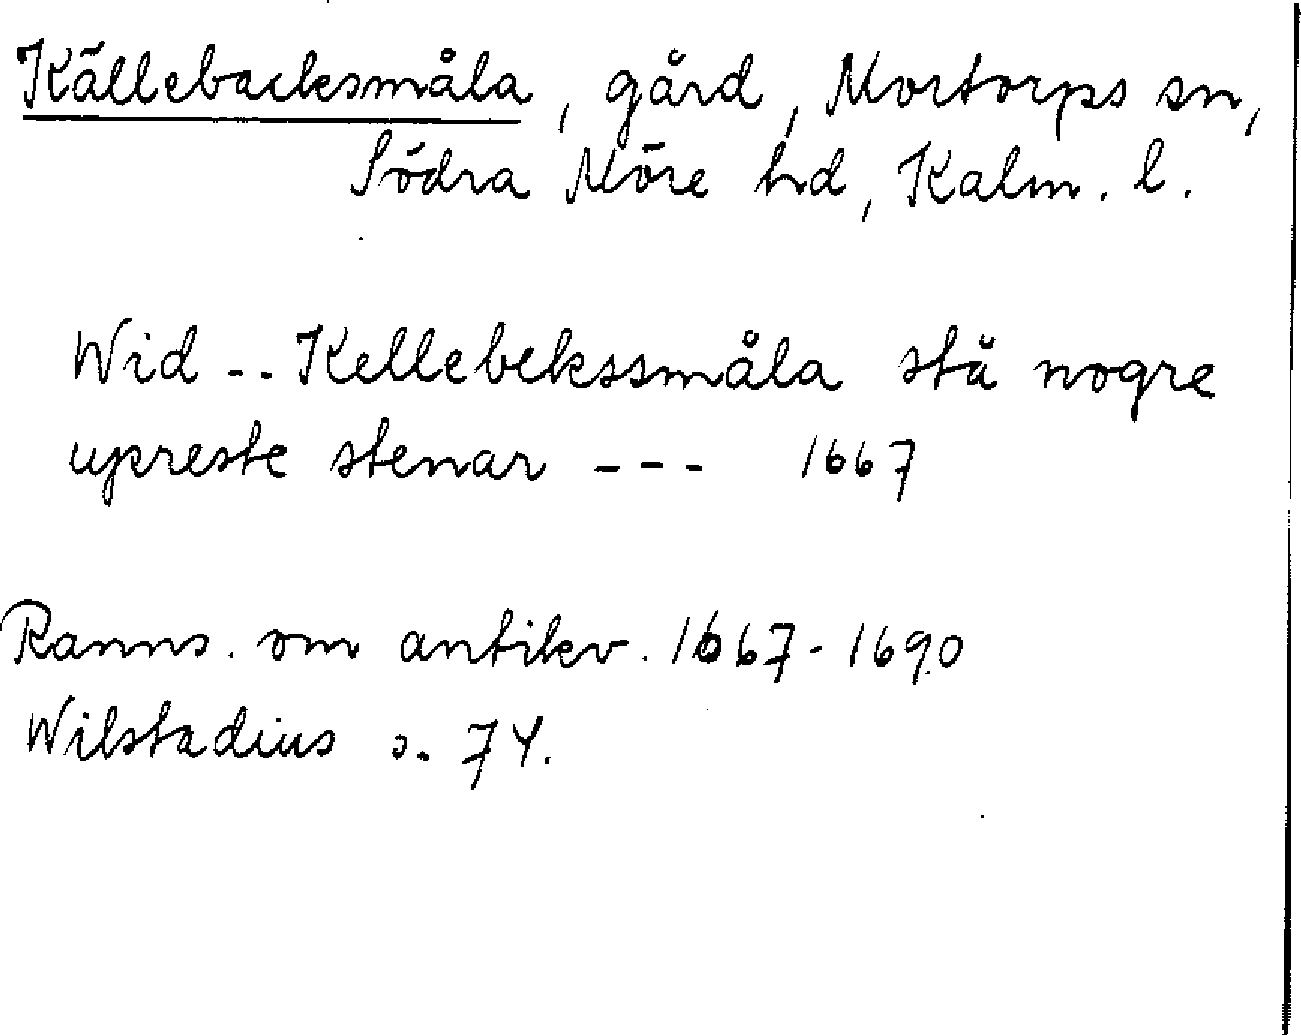 Källebacksmåla, gård, Mortorps sn,
Södra Möre hd, Kalm. l.
Wid -- Kellebekssmåla stå nogre
upreste stenar --- 1667
Ranns. om antikv. 1667-1690
Wilstadius s. 74.